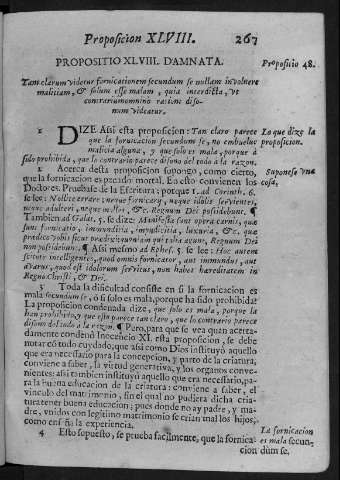 Proposicion XLVIII. 267
PROPOSITIO XLVIII. DAMNATA. Propositio 48.
Tam clarum videtur fornicationem secundum se nullam involvere
malitiam, & solum esse malam, quia interdicta, ut
contrarium omnino rationi disso-
num videatur.
1 DIZE Assi esta proposicion: Tan claro parece Lo que dize la
que la fornicacion secundum se, no embuelve proposicion.
malicia alguna, y que solo es mala, porque à
sido prohibida, que lo contrario parece disono del todo a la razon.
2 Acerca desta proposicion supongo, como cierto, Suponese una
que la fornicacion es pecado mortal. En esto convienen los cosa.
Doctores. Pruebase de la Escritura: porque 1. ad Corinth. 6.
se lee: Nolite errare: neque fornicarij, neque idolis servientes,
neque adulteri, neque molles, &c. Regnum Dei possidebunt. ¶
Tambien ad Galat. 5. se dize: Manifesta sunt opera carnis, quæ
sunt fornicatio, immunditia, impudicitia, luxuria, &c. quæ
prædico vobis sicut prædixi quoniam qui talia agunt, Regnum Dei
non possidebunt. ¶ Assi mesmo ad Ephes. 5. se lee: Hoc autem
scitote intelligentes, quod omnis fornicator, aut immundus, aut
avarus, quod est idolorum servitus, non habet hæreditatem in
Regno Christi, & Dei.
3 Toda la dificultad consiste en si la fornicacion es
mala secundum se, ò si solo es mala, porque ha sido prohibida?
La proposicion condenada dize, que solo es mala, porque la
han prohibido, y que esto parece tan claro, que lo contrario parece
disono del todo a la razon. ¶ Pero, para que se vea quan acerta-
damente condenò Inocencio XI. esta proposicion, se debe
notar có todo cuydado, que assi como Dios instituyò aquello
que era necessario para la concepcion, y parto de la criatura,
conviene a saber, la virtud generativa, y los organos conve-
nientes: assi tambien instituyò aquello que era necessario, pa-
ra la buena educacion de la criatura: conviene a saber, el
vinculo del matrimonio, sin el qual no pudiera dicha cria-
tura tener buena educacion; pues donde no ay padre, y ma-
dre, unidos con legitimo matrimonio se crian mal los hijos,
como enseña la experiencia. La fornicacion
4 Esto supuesto, se prueba facilmente, que la fornica- es mala secun-
cion dum se.